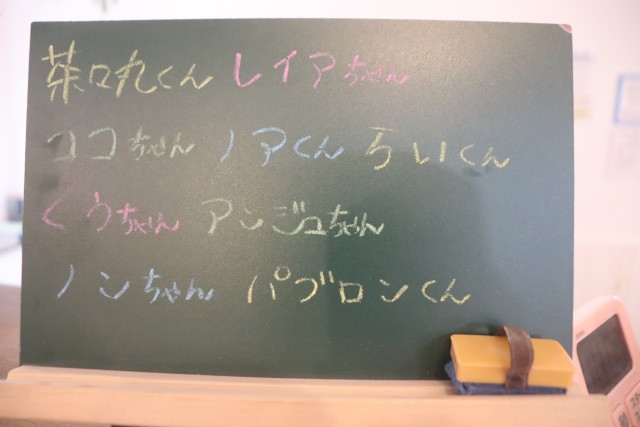 茶々丸くん レイアちゃん
ココちゃん ノアくん らいくん
くうちゃん アンジュちゃん
ノンちゃん パブロンくん